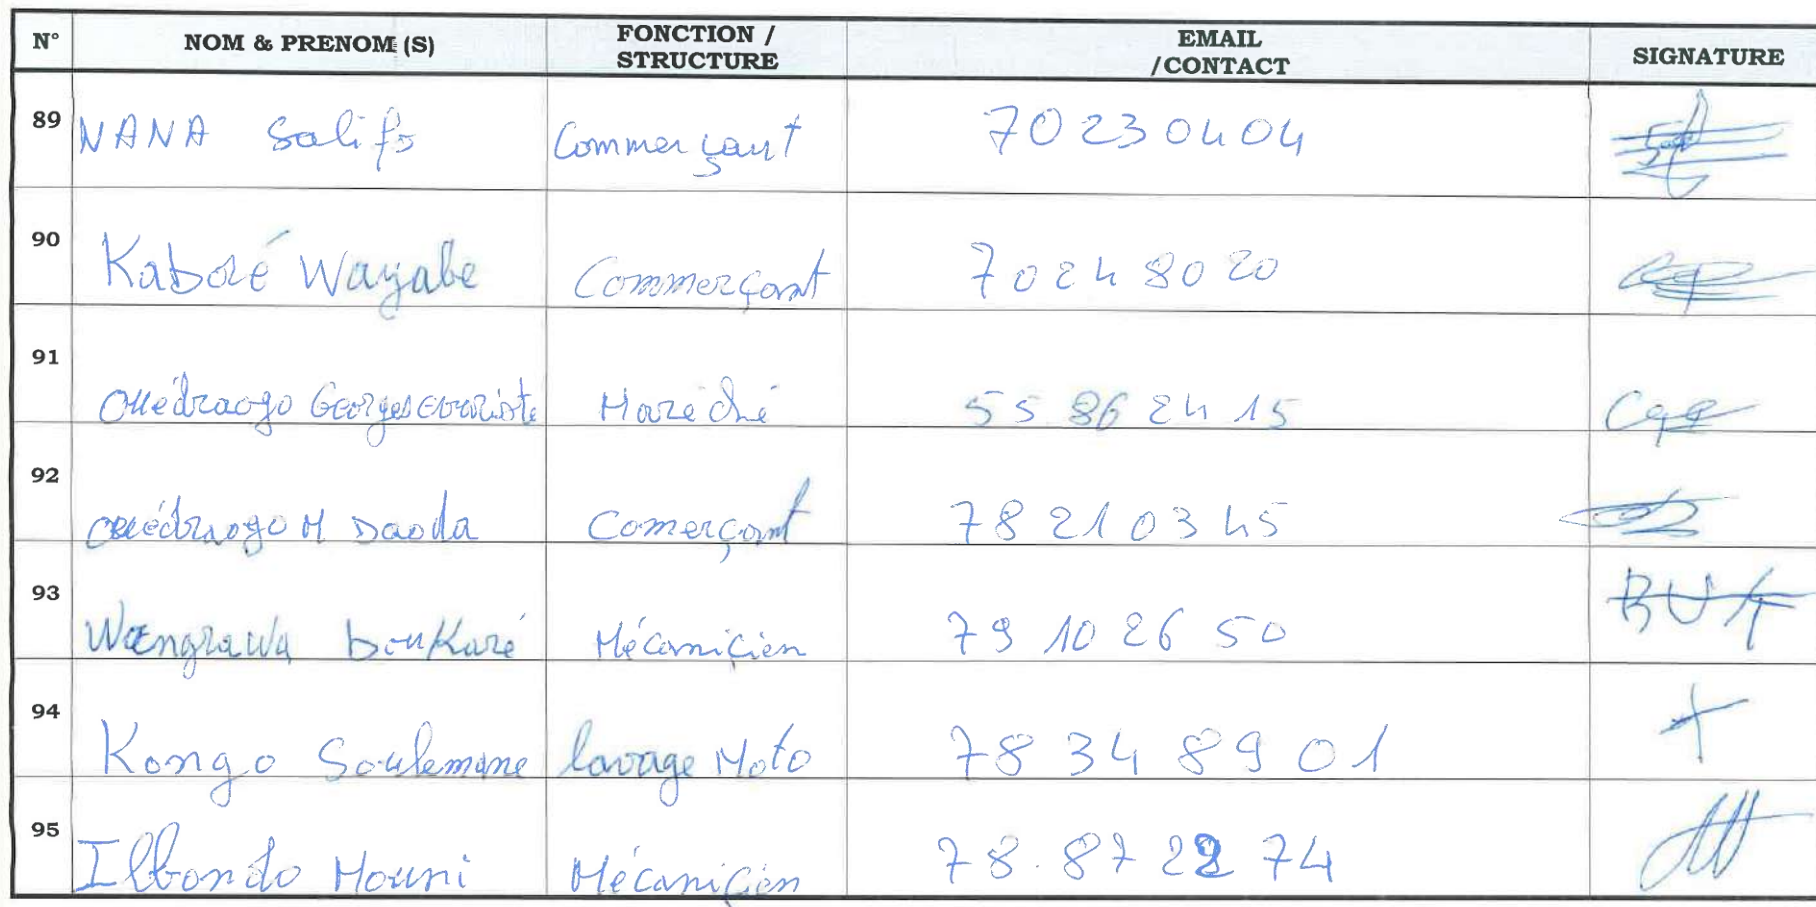 N° NOM & PRENOM (S) FONCTION / STRUCTURE EMAIL /CONTACT SIGNATURE
89 NANA Salifo Commerçant 70230404
90 Kaboré Wayabe Commerçant 70248020
91 Ouédraogo Georges evariste Maréché 55 86 24 15
92 Ouédraogo M Daoda Comerçant 78 21 03 45
93 Wengrawa boukaré Mécanicien 79 10 26 50
94 Kongo Soulemane lavage Moto 78 34 89 01
95 Ilbondo Mouni Mécanicien 78 87 22 74